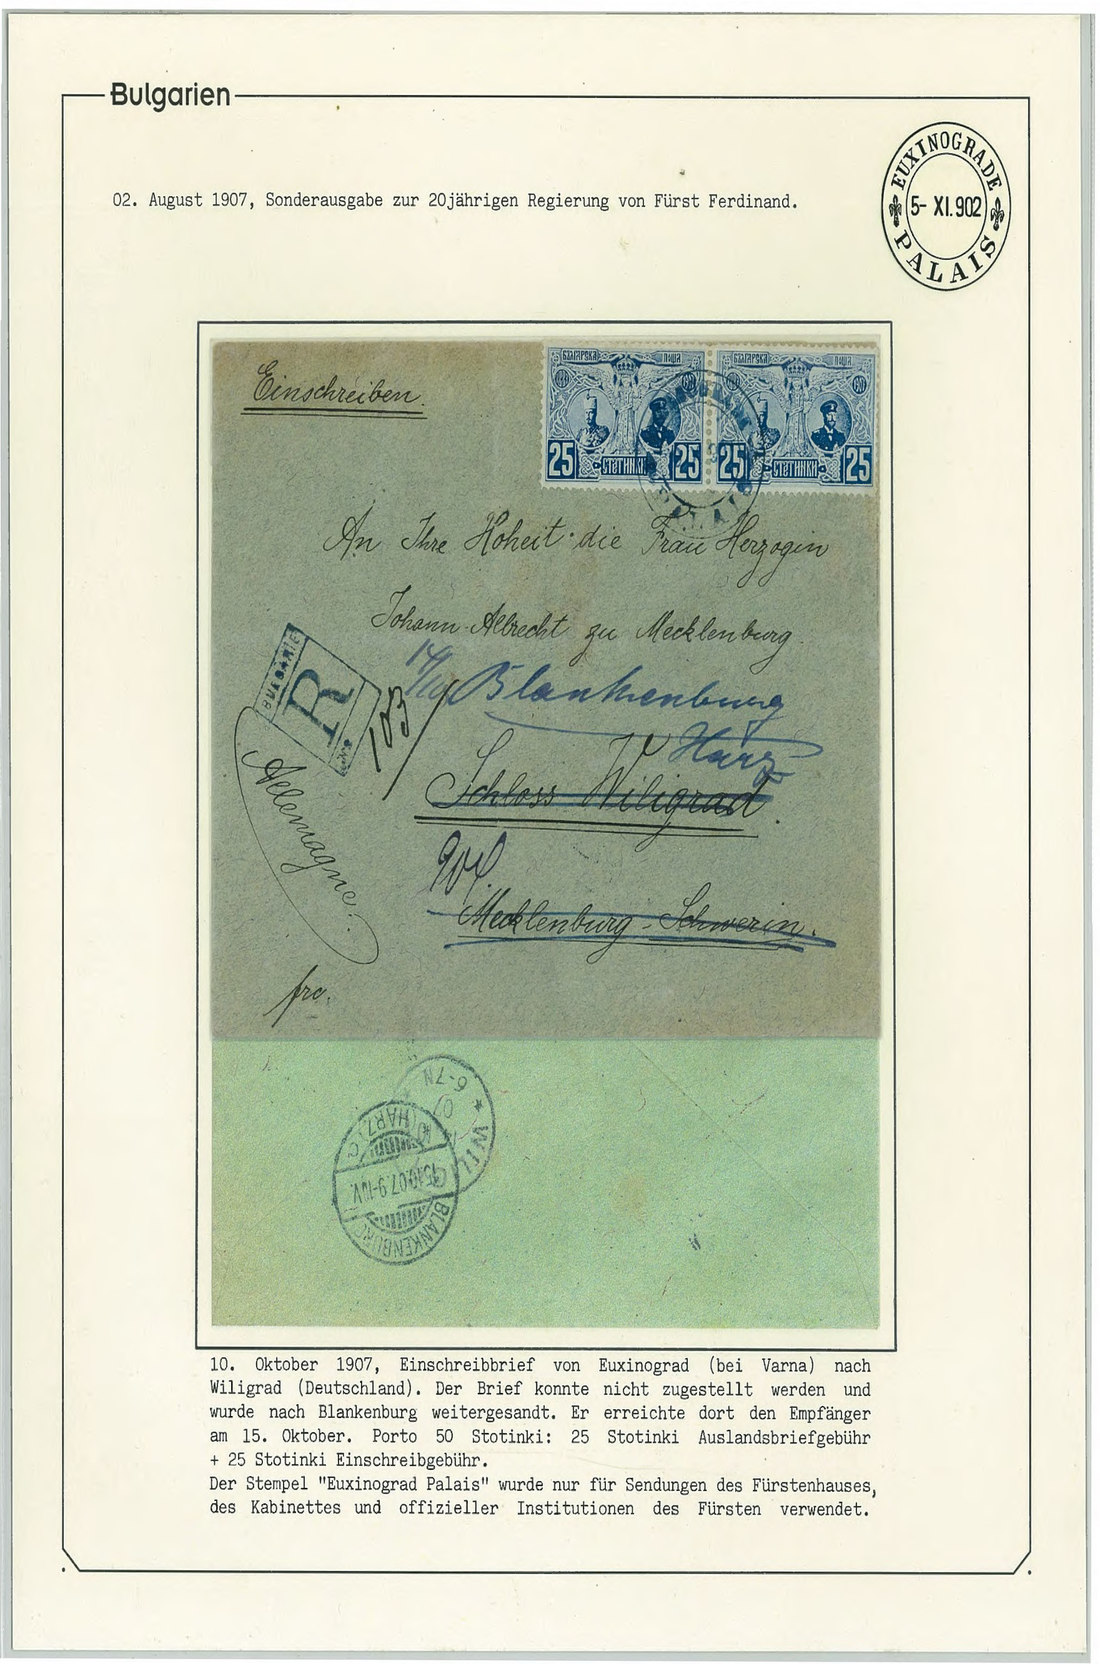 Bulgarien
EUXINOGRADE
5- XI.902
PALAIS
02. August 1907, Sonderausgabe zur 20jährigen Regierung von Fürst Ferdinand.
Einschreiben.
БЪЛГАРСКА ПОЩА БЪЛГАРСКА ПОЩА
25 СТОТИНКИ 25 25 СТОТИНКИ 25
An Ihre Hoheit die Frau Herzogin
Johann Albrecht zu Mecklenburg.
BULGARIE
R
No
103
Blankenburg
Harz
Schloss Wiligrad.
Allemagne.
Mecklenburg-Schwerin.
fro.
6-7N
WILI
BLANKENBURG
15.10.07.9-10V.
(HARZ)
10. Oktober 1907, Einschreibbrief von Euxinograd (bei Varna) nach
Wiligrad (Deutschland). Der Brief konnte nicht zugestellt werden und
wurde nach Blankenburg weitergesandt. Er erreichte dort den Empfänger
am 15. Oktober. Porto 50 Stotinki: 25 Stotinki Auslandsbriefgebühr
+ 25 Stotinki Einschreibgebühr.
Der Stempel "Euxinograd Palais" wurde nur für Sendungen des Fürstenhauses,
des Kabinettes und offizieller Institutionen des Fürsten verwendet.